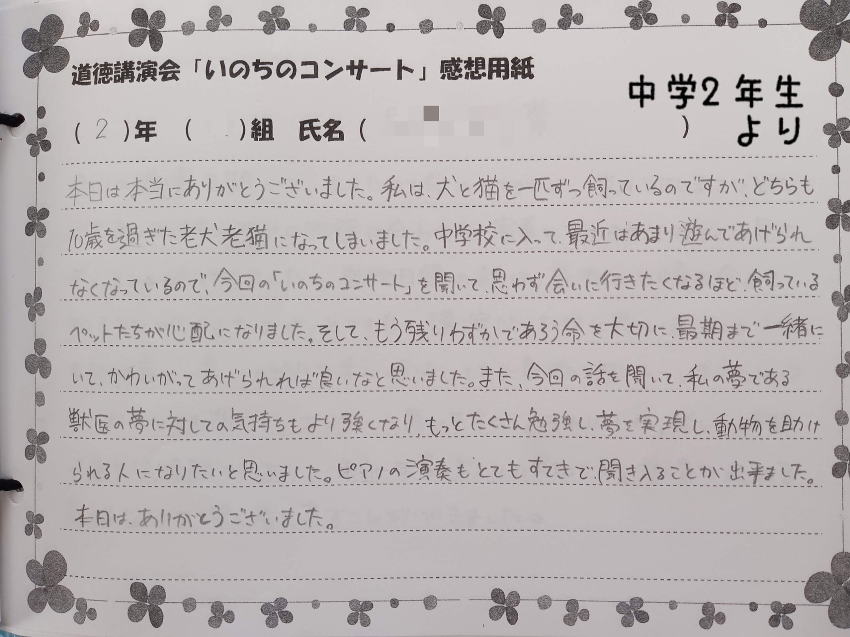 道徳講演会「いのちのコンサート」感想用紙
中学2年生
より
( 2 )年 ( )組 氏名 ( )
本日は本当にありがとうございました。私は、犬と猫を一匹ずつ飼っているのですが、どちらも
10歳を過ぎた老犬老猫になってしまいました。中学校に入って、最近はあまり遊んであげられ
なくなっているので、今回の「いのちのコンサート」を聞いて、思わず会いに行きたくなるほど、飼っている
ペットたちが心配になりました。そして、もう残りわずかであろう命を大切に、最期まで一緒に
いて、かわいがってあげられれば良いなと思いました。また、今回の話を聞いて、私の夢である
獣医の夢に対しての気持ちもより強くなり、もっとたくさん勉強し、夢を実現し、動物を助け
られる人になりたいと思いました。ピアノの演奏もとてもすてきで、聞き入ることが出来ました。
本日は、ありがとうございました。